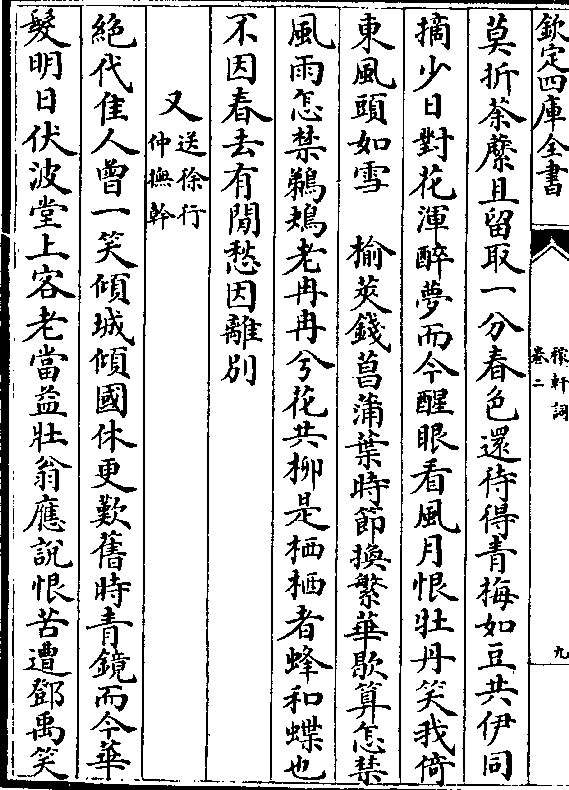 欽定四庫全書
稼軒詞
卷二
九
莫折荼蘼且留取一分春色還待得青梅如豆共伊同
摘少日對花渾醉夢而今醒眼看風月恨牡丹笑我倚
東風頭如雪　榆莢錢菖蒲葉時節換繁華歇算怎禁
風雨怎禁鵜鴂老冉冉兮花共柳是栖栖者蜂和蝶也
不因春去有閒愁因離別
又送徐行
仲撫幹
絕代佳人曾一笑傾城傾國休更歎舊時青鏡而今華
髮明日伏波堂上客老當益壯翁應說恨苦遭鄧禹笑